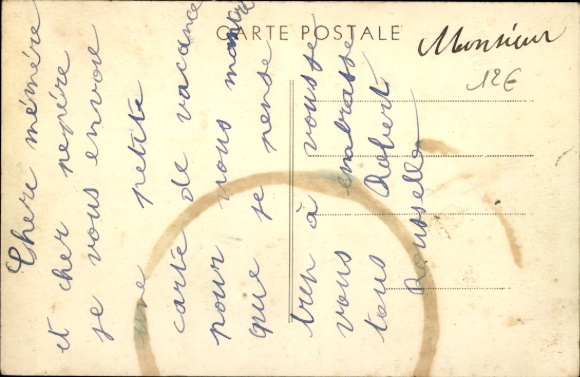 CARTE POSTALE
Monsieur
12€
Cheri mémére
et cher pepére
je vous envoie
une petite
carte de vacance
pour vous montre
que je pense
tren à vousse
vous embrasse
tous Robert
Rousselle